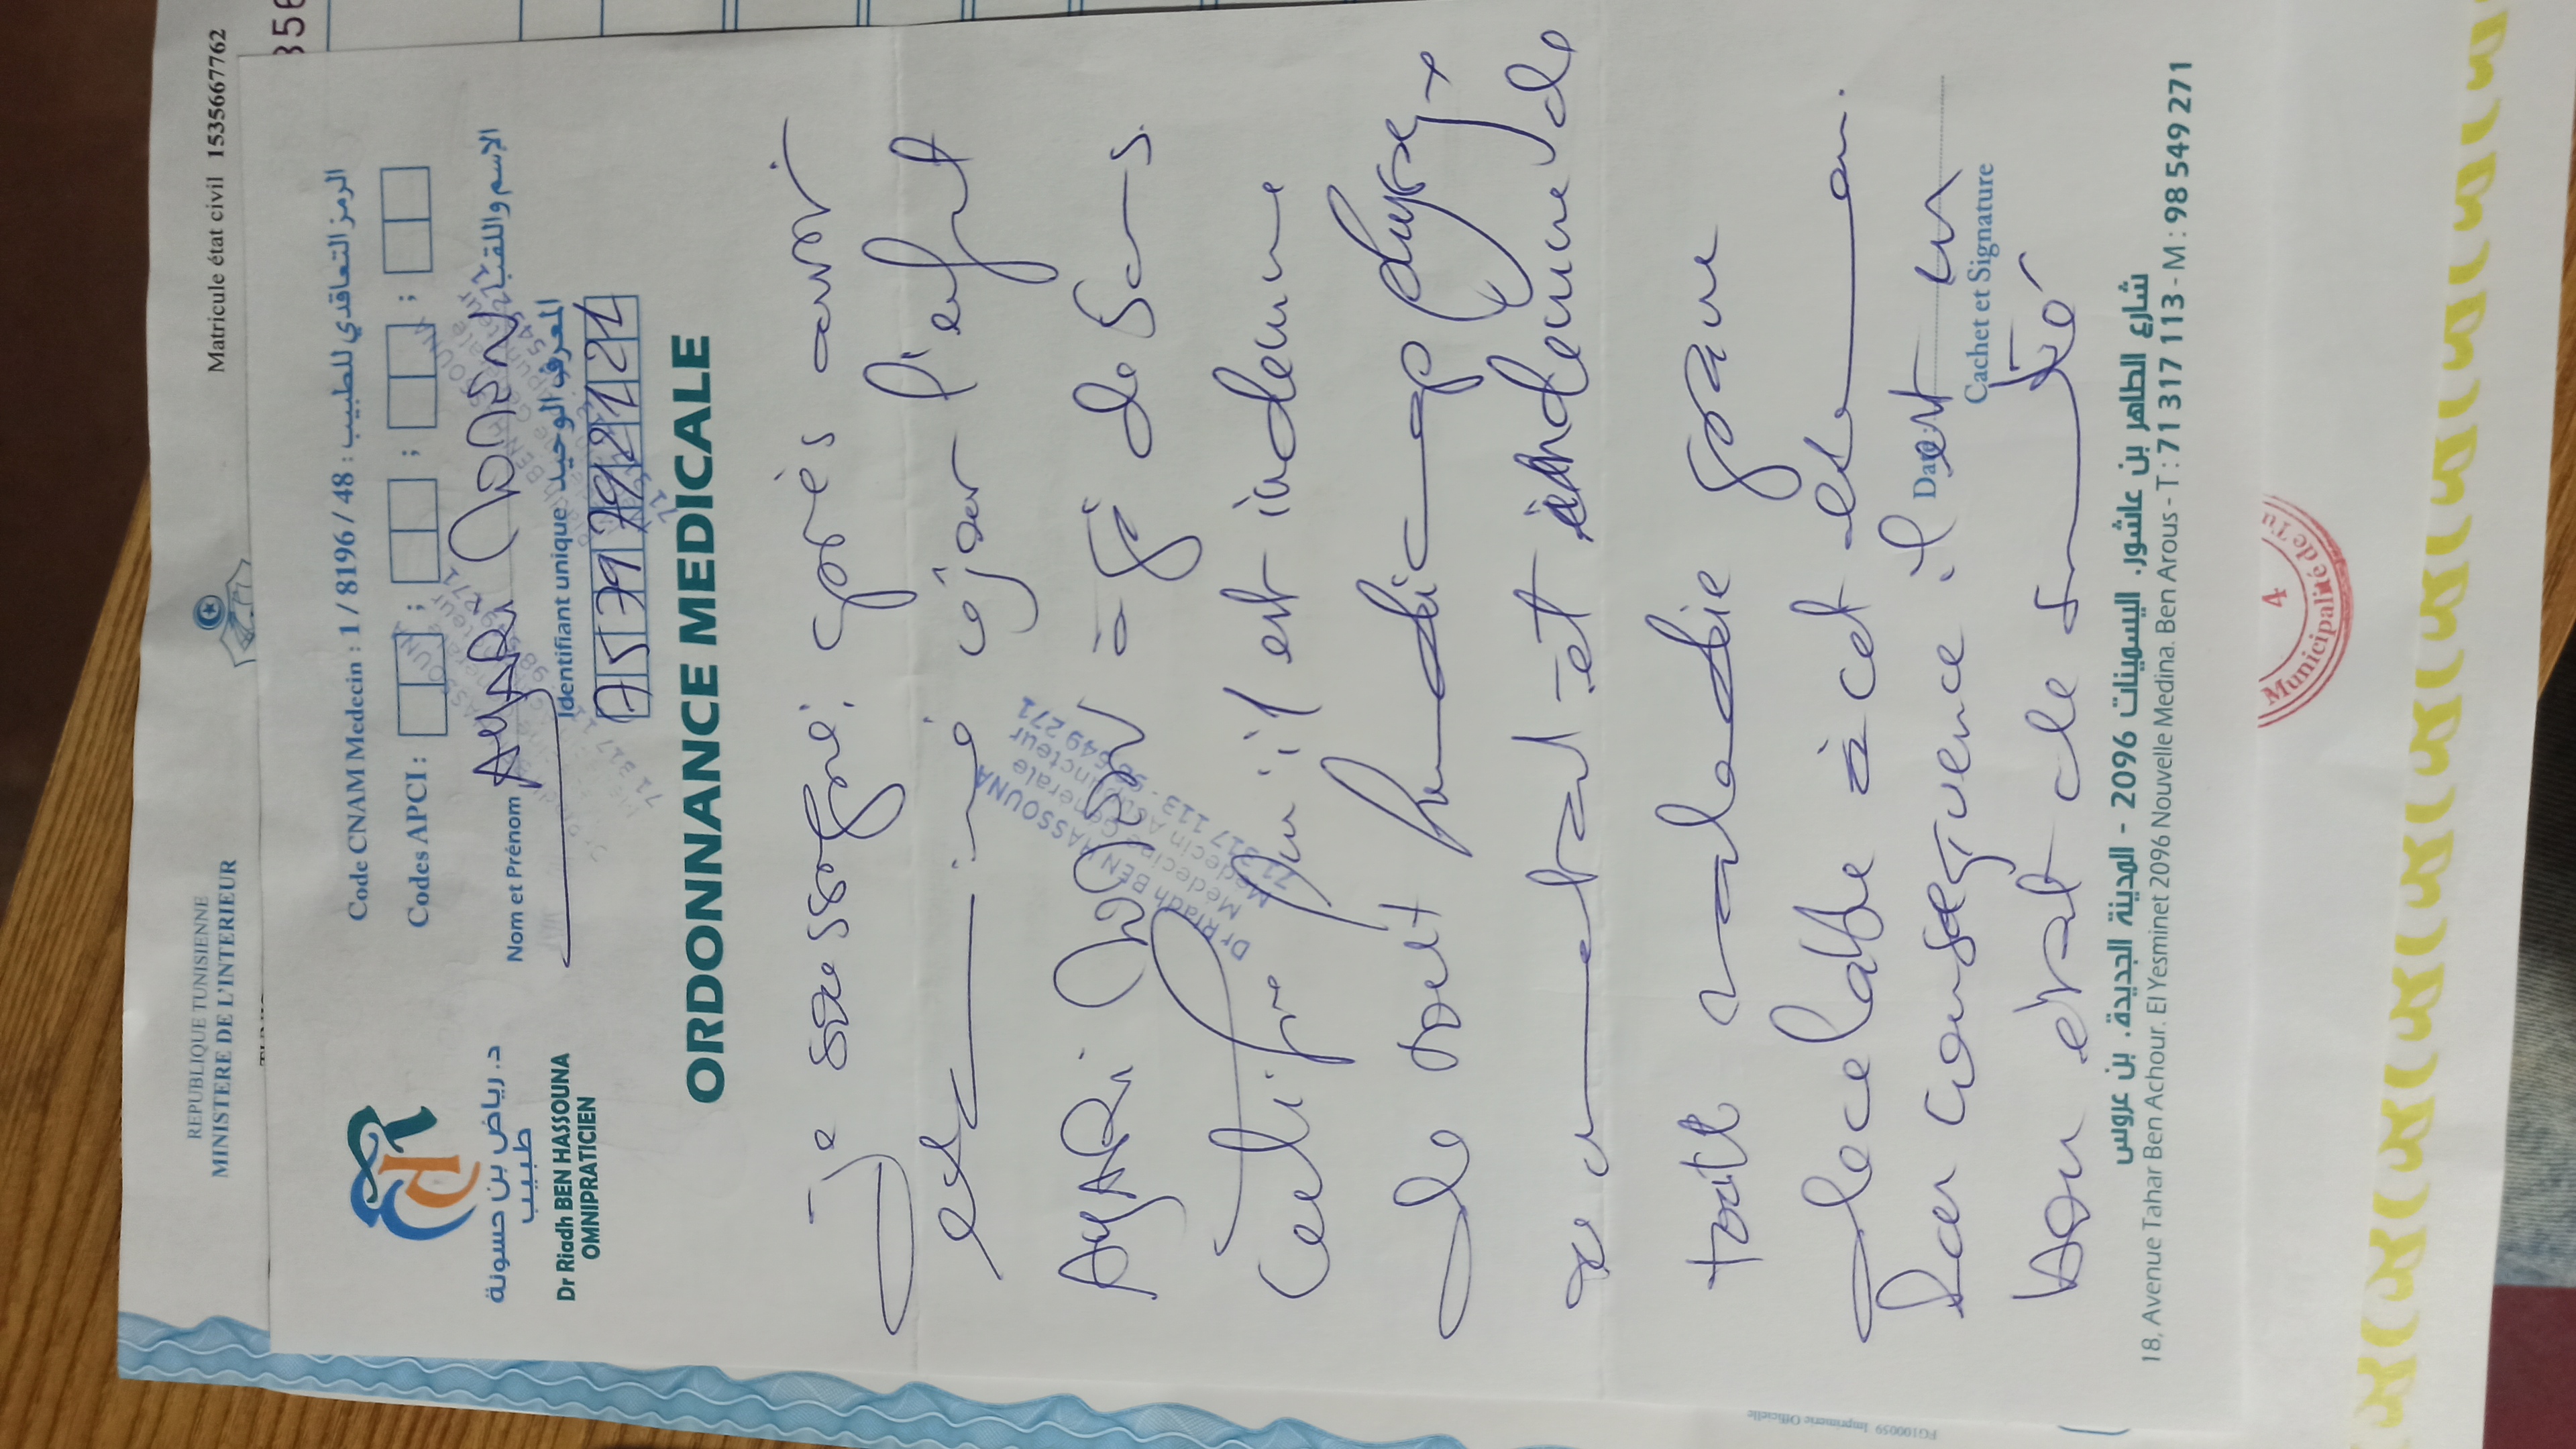 REPUBLIQUE TUNISIENNE
MINISTERE DE L'INTERIEUR
Matricule état civil 1535667762
د. رياض بن حسونة
طبيب
Dr Riadh BEN HASSOUNA
OMNIPRATICIEN
Code CNAM Medecin : 1 / 8196 / 48 : الرمز التعاقدي للطبيب
Codes APCI : ; ; ;
Nom et Prénom AYARI الاسم واللقب
Identifiant unique المعرف الوحيد
ORDONNANCE MEDICALE
Je soussigné, après avoir
examiné ce jour l'enfant
AYARI âgé de 5 ans
Certifie qu'il est indemne
de tout handicap physique
ou mental et est indemne de
toute maladie grave
decelable à cet examen.
Par consequence il est en
bon état de santé
Date
Cachet et Signature
Dr Riadh BEN HASSOUNA
Médecine Générale
71 317 113 - 98 549 271
شارع الطاهر بن عاشور. اليسمينات 2096 - المدينة الجديدة. بن عروس
18, Avenue Tahar Ben Achour. El Yesminet 2096 Nouvelle Medina. Ben Arous - T : 71 317 113 - M : 98 549 271
4
Municipalité de Tu
FG100059 Imprimerie Officielle